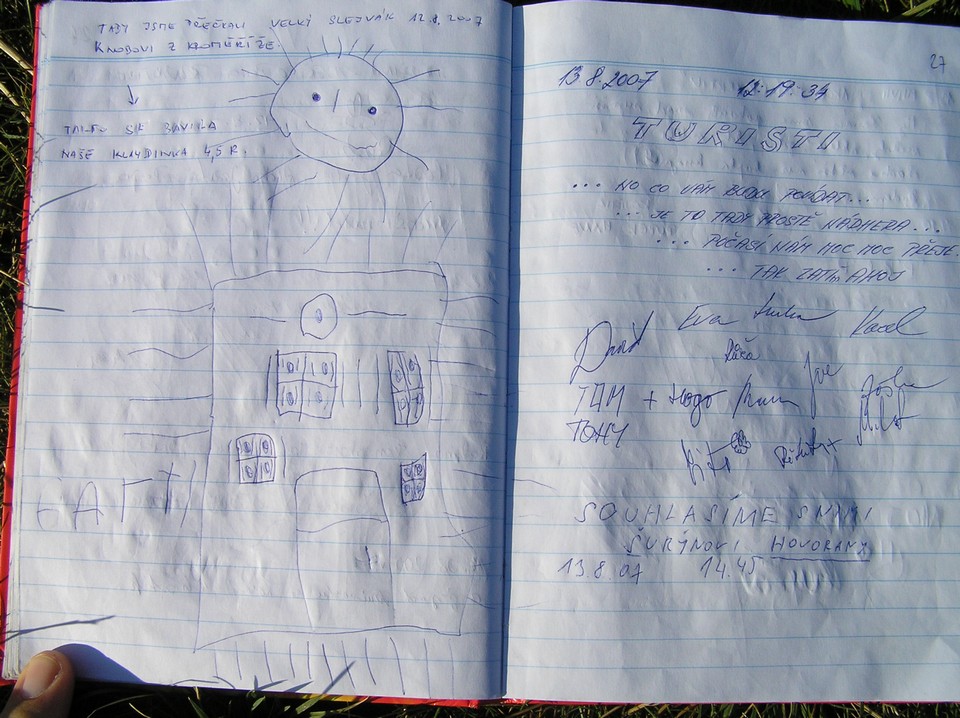 TADY JSME PŘEČKALI VELKÝ SLEJVÁK 12.8.2007
KNOBOVI Z KROMĚŘÍŽE.
TAKTO SE BAVILA
NAŠE KLAUDINKA 4,5 R.
27
13.8.2007 12:19:34
TURISTI
... NO CO VÁM BUDU POVÍDAT...
... JE TO TADY PROSTĚ NÁDHERA...
... POČASÍ NÁM MOC MOC PŘEJE.
... TAK ZATÍM AHOJ
Eva Lenka Karel
David
TOM + Hugo
TONY
SOUHLASÍME S NIMI
ŠURÝNOVI HOVORANY
13.8.07 14.45